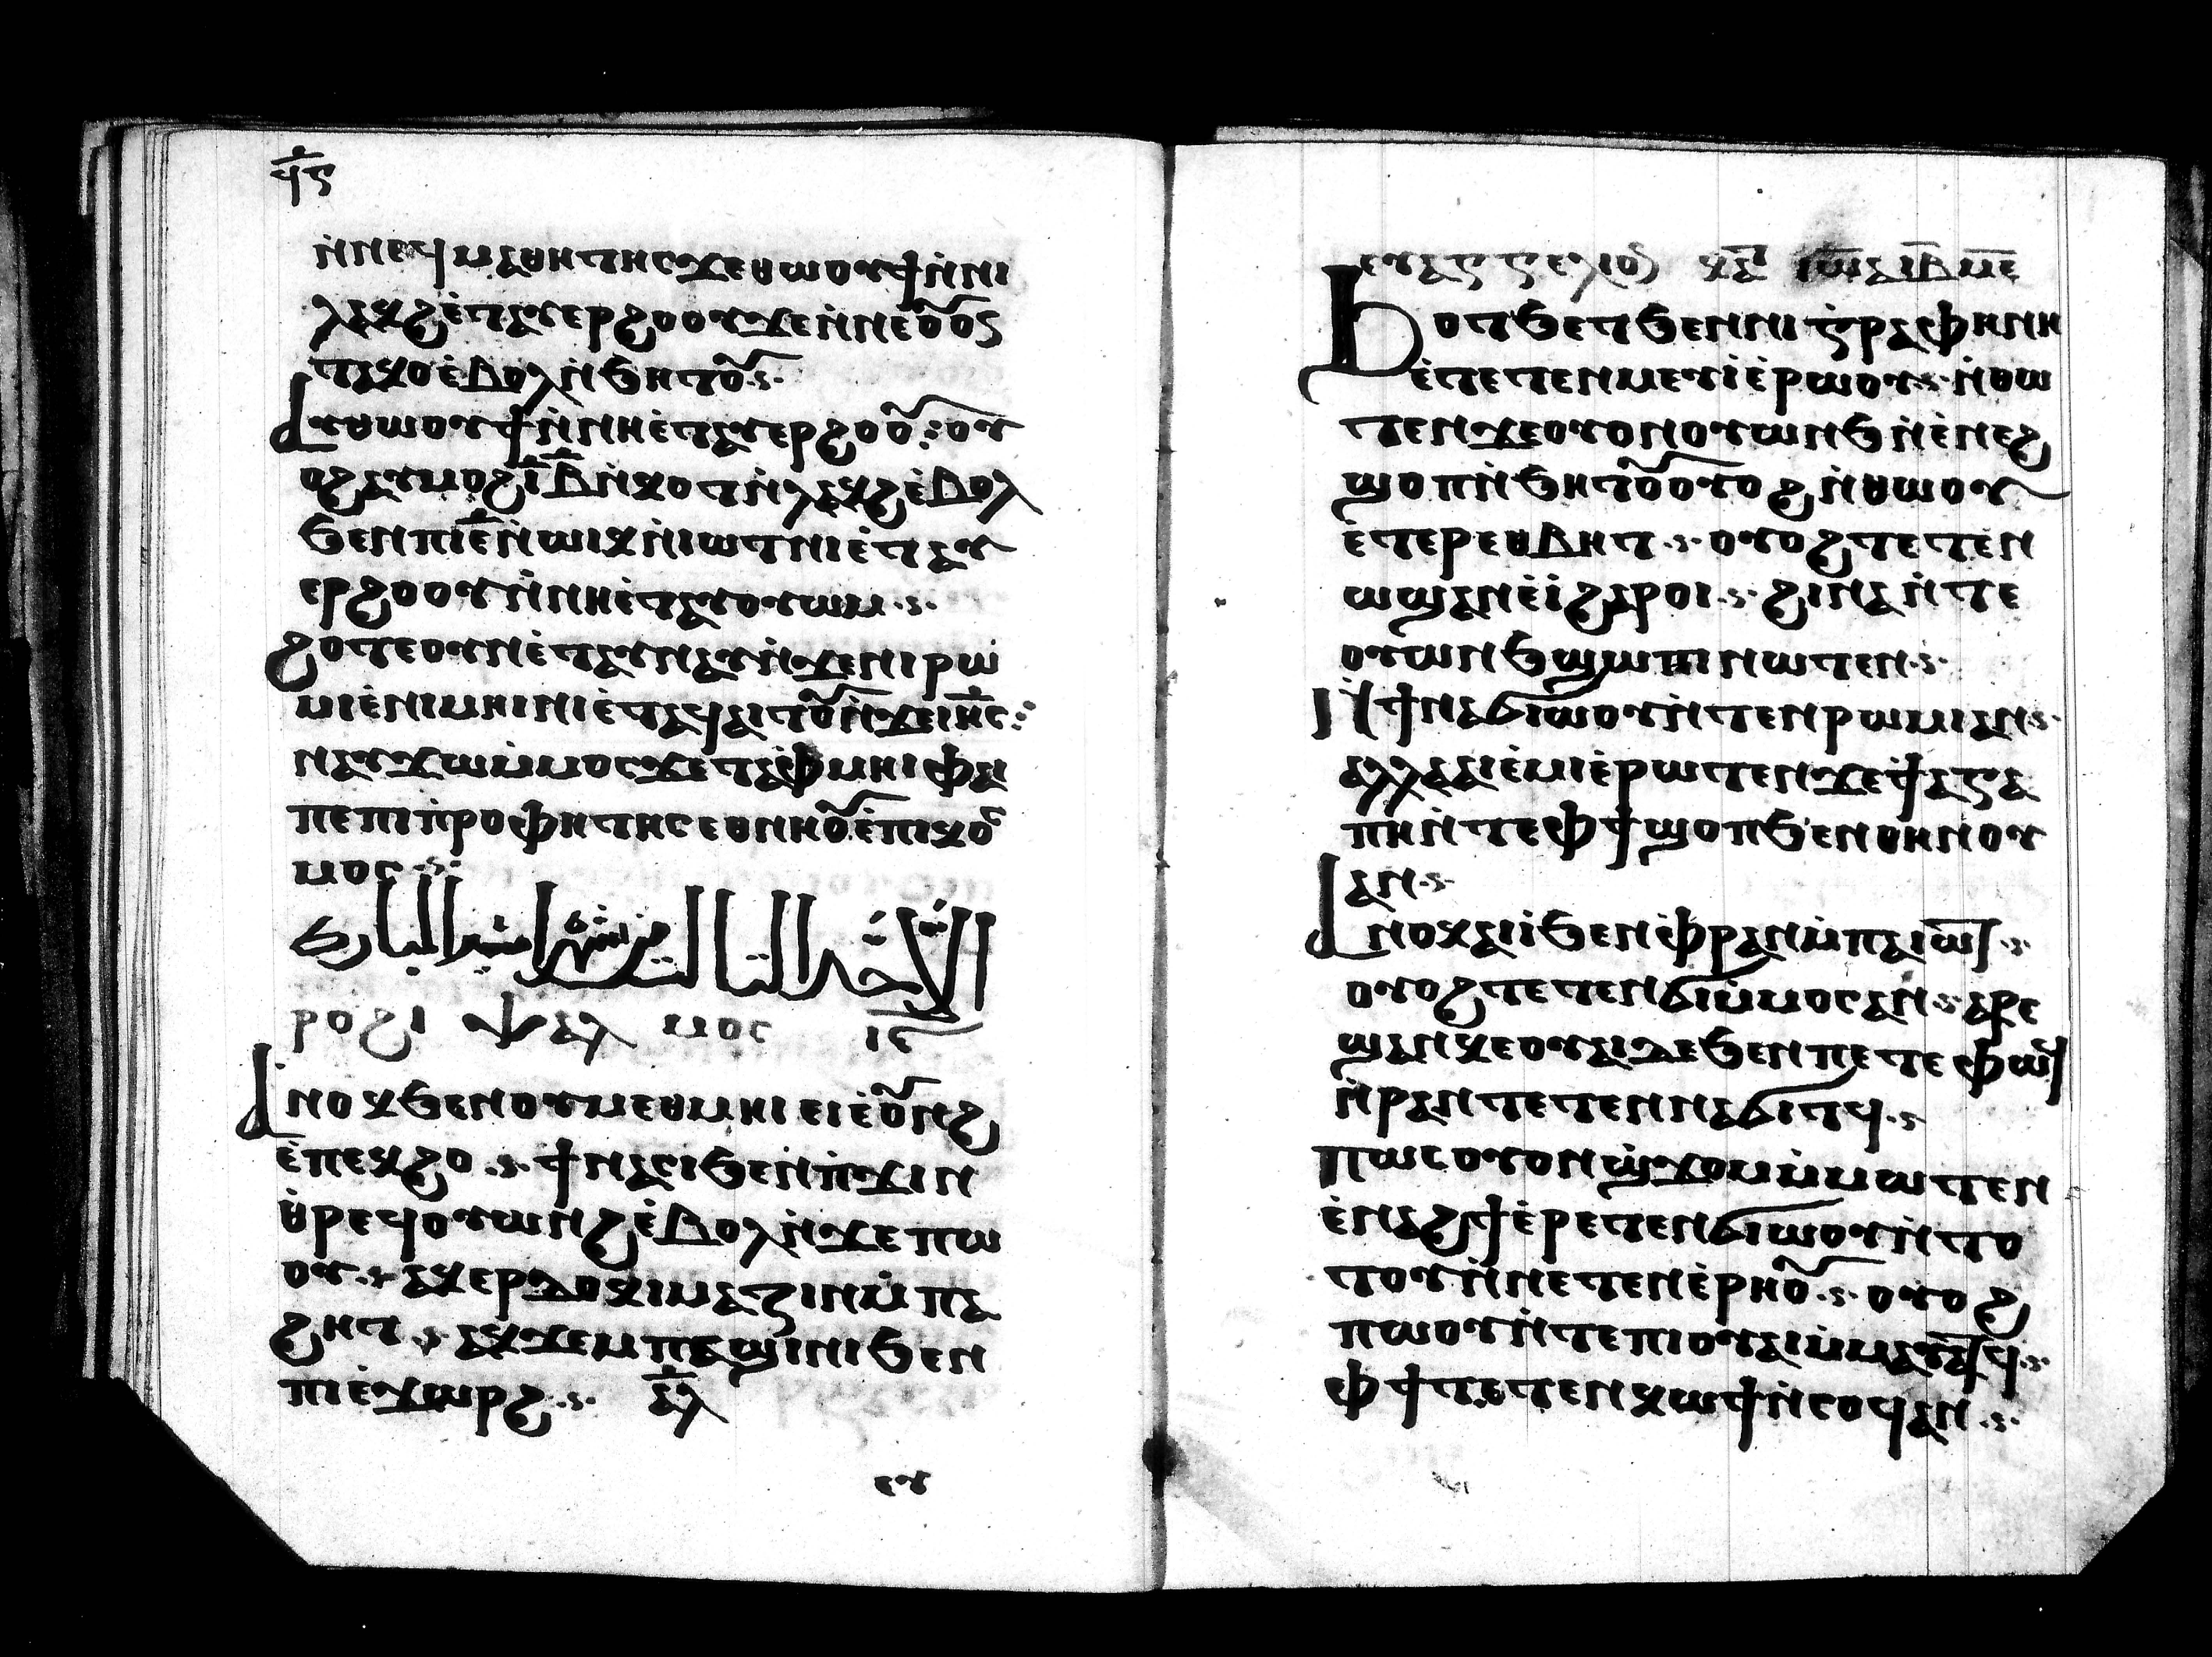 ϥ̅ⲋ
ⲛ̀ⲛⲉϥⲙⲁⲑⲏⲧⲏⲥϫⲉⲑⲱⲟⲩϯⲛ̀ⲛⲓ
ⲗⲁⲕϩⲉ̀ⲧⲁⲩⲉⲣϩⲟⲟⲩϫⲉⲛ̀ⲛⲉⲟ̅ⲟⲥ
ⲧⲁⲕⲟⲉ̀ⲃⲟⲗⲛ̀ϧⲏⲧⲟ̅ⲩ
ⲁⲩⲑⲱⲟⲩϯⲛ̀ⲛⲏⲉ̀ⲧⲁⲩⲉⲣϩⲟⲟ̅ⲩ ⲟⲩ
ⲟϩⲁⲩⲙⲟϩⲓ̅ⲃ̅ⲛ̀ⲕⲟⲧⲛ̀ⲗⲁⲕϩⲉ̀ⲃⲟⲗ
ϧⲉⲛⲡⲓⲉ̅ⲛ̀ⲱⲓⲕⲛ̀ⲓⲱⲧⲛⲓⲉ̀ⲧⲁⲩ
ⲉⲣϩⲟⲟⲩⲛ̀ⲛⲏⲉ̀ⲧⲁⲩⲟⲩⲱⲙ
ϩⲟⲧⲉⲟⲩⲛⲉ̀ⲧⲁⲩⲛⲁⲩⲛ̀ϫⲉⲛⲓⲣⲱ
ⲙⲓⲉ̀ⲛⲓⲙⲏⲓⲛⲓⲉ̀ⲧⲁϥⲁⲓⲧⲟ̅ⲩⲛ̀ϫⲉⲓⲏ̅ⲥ
ⲛⲁⲩϫⲱⲙ̀ⲙⲟⲥϫⲉⲧⲁⲫ̀ⲙⲏⲓⲫⲁⲓ
ⲡⲉⲡⲓⲡ̀ⲣⲟⲫⲏⲧⲏⲥⲉⲑⲛⲏⲟ̅ⲩⲉ̀ⲡⲓⲕⲟⲥ
ⲙⲟⲥ
الاحد الثاني من شهر امشير المبارك
ⲣⲟϩⲓ ⲯⲁⲗ ⲙⲟⲥ ⲓ̅ⲋ̅
ⲁⲛⲟⲕϧⲉⲛⲟⲩⲙⲉⲑⲙⲏⲓⲉⲓⲉ̀ⲟ̅ⲩⲛϩ
ⲉ̀ⲡⲉⲕϩⲟ ϯⲛⲁⲥⲓϧⲉⲛⲡ̀ϫⲓⲛ
ⲑ̀ⲣⲉϥⲟⲩⲱⲛϩⲉ̀ⲃⲟⲗⲛ̀ϫⲉⲡⲱ
ⲟⲩ ⲁⲕⲉⲣⲇⲟⲕⲓⲙⲁⲍⲓⲛⲙ̀ⲡⲁ
ϩⲏⲧ ⲁⲕϫⲉⲙⲡⲁϣⲓⲛⲓϧⲉⲛ
ⲡⲓⲉ̀ϫⲱⲣϩ ⲁ̅ⲗ
ⲉⲩ
ⲉⲩⲁⲅⲅⲉⲗⲓⲟⲛ ⲕⲁ ⲓⲱ̅ⲁⲓ̅ⲃ̅ⲙ̅ⲉ̅
ϧⲟⲧϧⲉⲧϧⲉⲛⲛⲓⲅ̀ⲣⲁⲫⲏⲛⲏ
ⲉ̀ⲧⲉⲧⲉⲛⲙⲉⲩⲓ̀ⲉ̀ⲣⲱⲟⲩ ⲛ̀ⲑⲱ
ⲧⲉⲛϫⲉⲟⲩⲟⲛⲟⲩⲱⲛϧⲛ̀ⲉ̀ⲛⲉϩ
ϣⲟⲡⲛ̀ϧⲏⲧⲟ̅ⲩⲟⲩⲟϩⲛ̀ⲑⲱⲟⲩ
ⲉ̀ⲧⲉⲣⲉⲑⲃⲏⲧ ⲟⲩⲟϩⲧⲉⲧⲉⲛ
ⲱϣⲁⲛⲉ̀ⲓ̀ϩⲁⲣⲟⲓ ϩⲓⲛⲁⲛ̀ⲧⲉ
ⲟⲩⲱⲛϧϣⲱⲡⲓⲛⲱⲧⲉⲛ
ⲛ̀ϯⲛⲁϭⲓⲱ̀ⲟⲩⲛ̀ⲧⲉⲛⲣⲱⲙⲓⲁⲛ
ⲁⲗⲗⲁⲁⲓⲉ̀ⲙⲓⲉ̀ⲣⲱⲧⲉⲛϫⲉϯⲁⲅⲁ
ⲡⲏⲛ̀ⲧⲉⲫϯϣⲟⲡϧⲉⲛⲑⲏⲛⲟⲩ
ⲁⲛ
ⲁⲛⲟⲕⲁⲓⲓ̀ϧⲉⲛⲫ̀ⲣⲁⲛⲙ̀ⲡⲁⲓⲱ̅ⲧ
ⲟⲩⲟϩⲧⲉⲧⲉⲛϭⲓⲙ̀ⲙⲟⲥⲁⲛ ⲁⲣⲉ
ϣⲁⲛⲕⲉⲟⲩⲁⲓⲇⲉϧⲉⲛⲡⲉⲧⲉⲫⲱϥ
ⲛ̀ⲣⲁⲛⲧⲉⲧⲉⲛⲛⲁϭⲓⲧϥ
ⲡⲱⲥⲟⲩⲟⲛϣ̀ϫⲟⲙⲙ̀ⲙⲱⲧⲉⲛ
ⲉ̀ⲛⲁϩϯⲉ̀ⲣⲉⲧⲉⲛϭⲓⲱⲟⲩⲛ̀ⲧⲟ
ⲧⲟⲩⲛ̀ⲛⲉⲧⲉⲛⲉ̀ⲣⲏⲟ̅ⲩ ⲟⲩⲟϩ
ⲡⲱⲟⲩⲛ̀ⲧⲉⲡⲓⲟⲩⲁⲓⲙ̀ⲙⲁⲩⲁⲧϥ
ⲫϯⲧⲉⲧⲉⲛⲕⲱϯⲛ̀ⲥⲟϥⲁⲛ